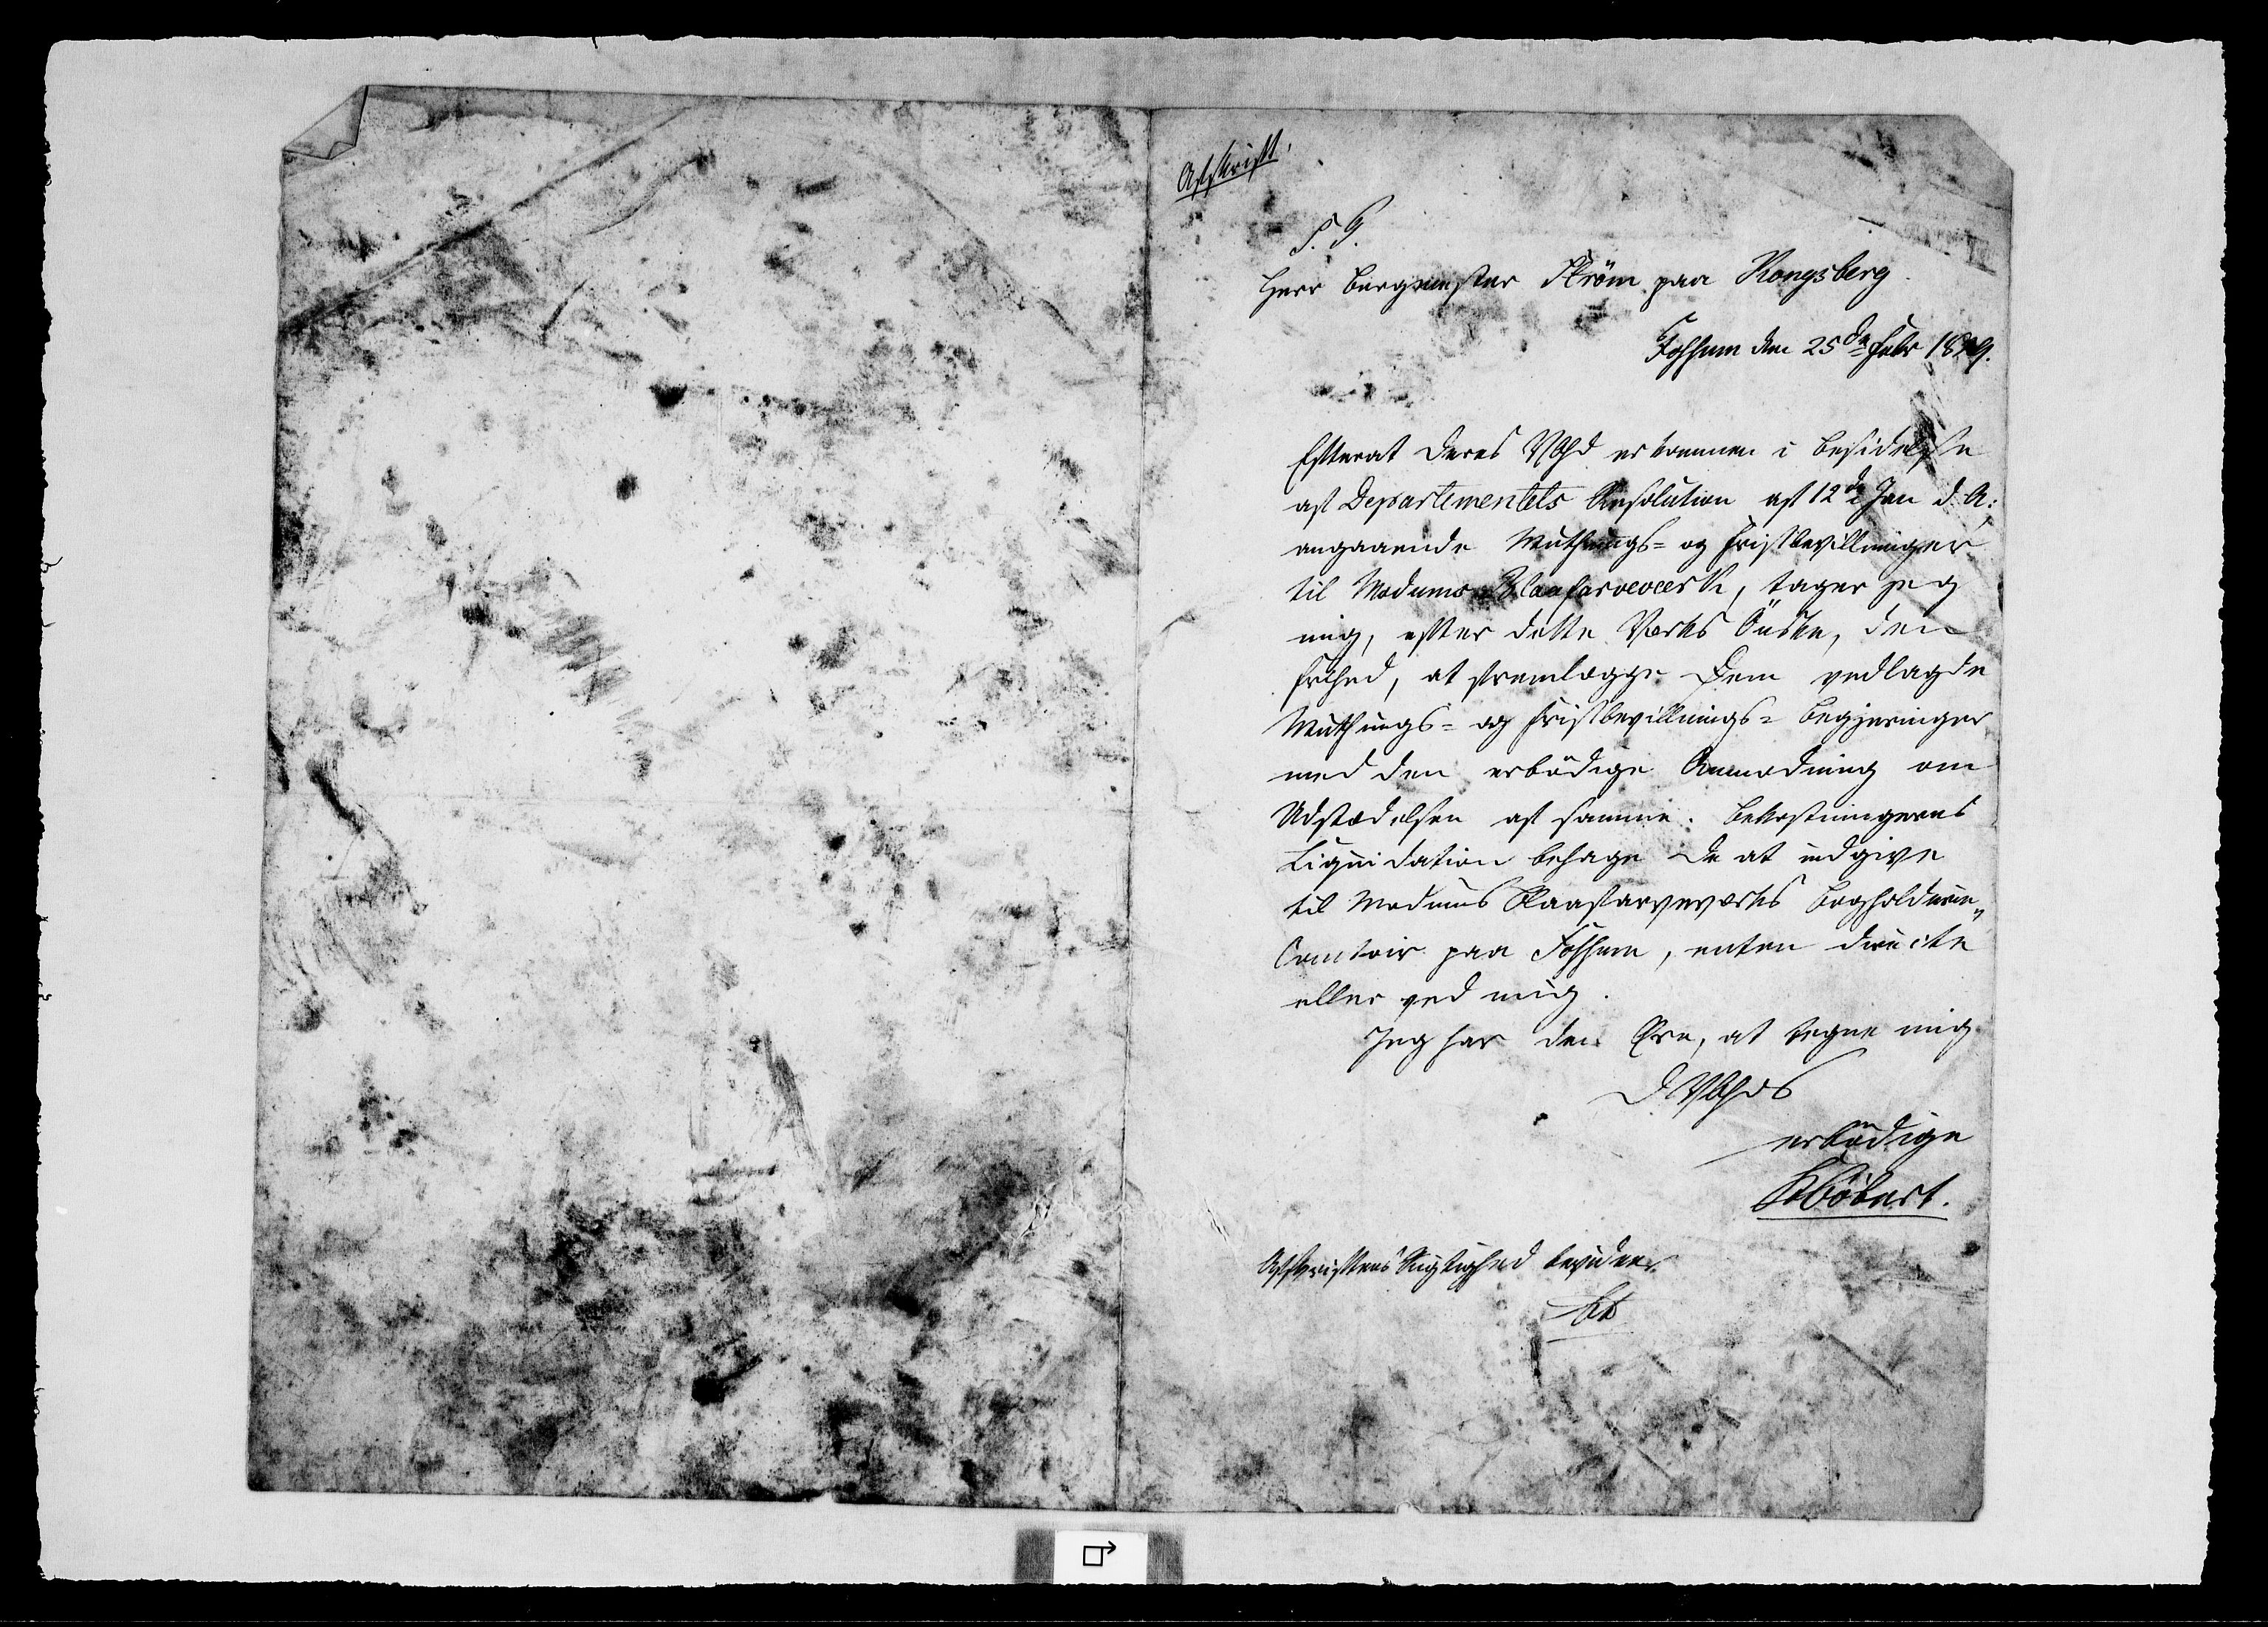 Afskrift.
S. T.
Herr Bergmester Ström paa Kongsberg.
Fossum den 25de Febr 1829.
Efterat Deres Vbhd er kommen i Besiddelse
af Departementets Resolution af 12de Jan d. A:
angaaende Muthungs- og Fristbevillinger
til Modums Blaafarveværk, tager jeg
mig, efter dette Værks Önske, den
Frihed, at fremlægge Dem vedlagde
Muthungs- og Fristbevillings- Begjeringer
med den erbödige Anmodning om
Udstædelsen af samme. Bekostningernes
Liquidation behage De at indgive
til Modums Blaafarveværks Bogholderie„
Comtoir paa Fossum, enten directe
eller ved mig.
Jeg har den Ære, at tegne mig
D Vbhds
erbödige
KBöbert.
Afskriftens Rigtighed bevidner